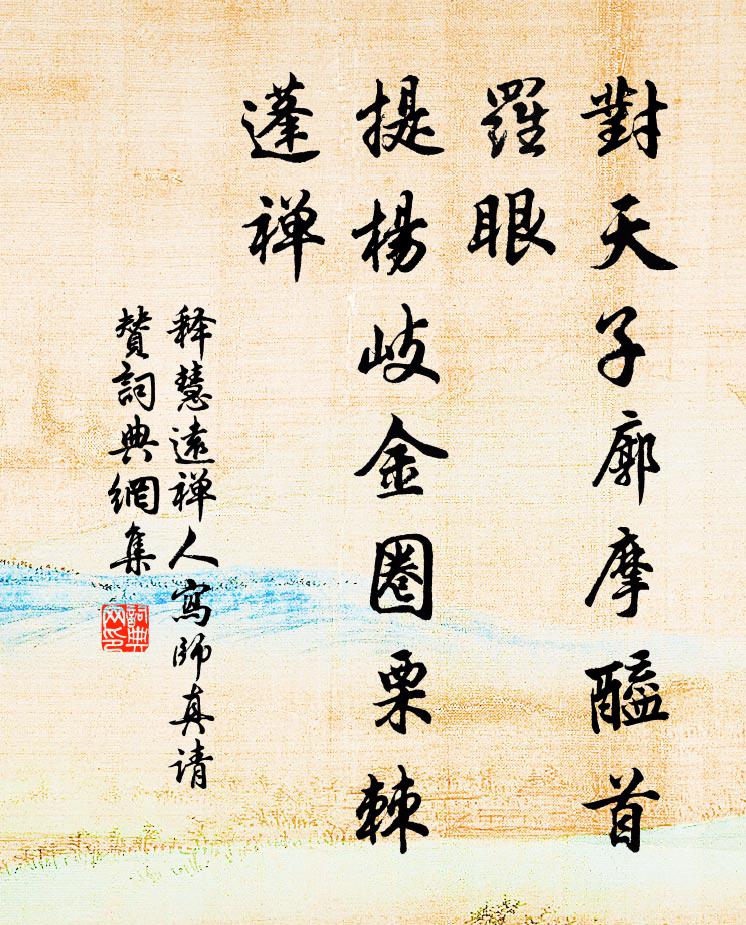 對天子廓摩醯首
羅眼
提楊岐金圈栗棘
蓬禅
释慧遠禅人寫師真请
赞詞典網集
詞典
网印